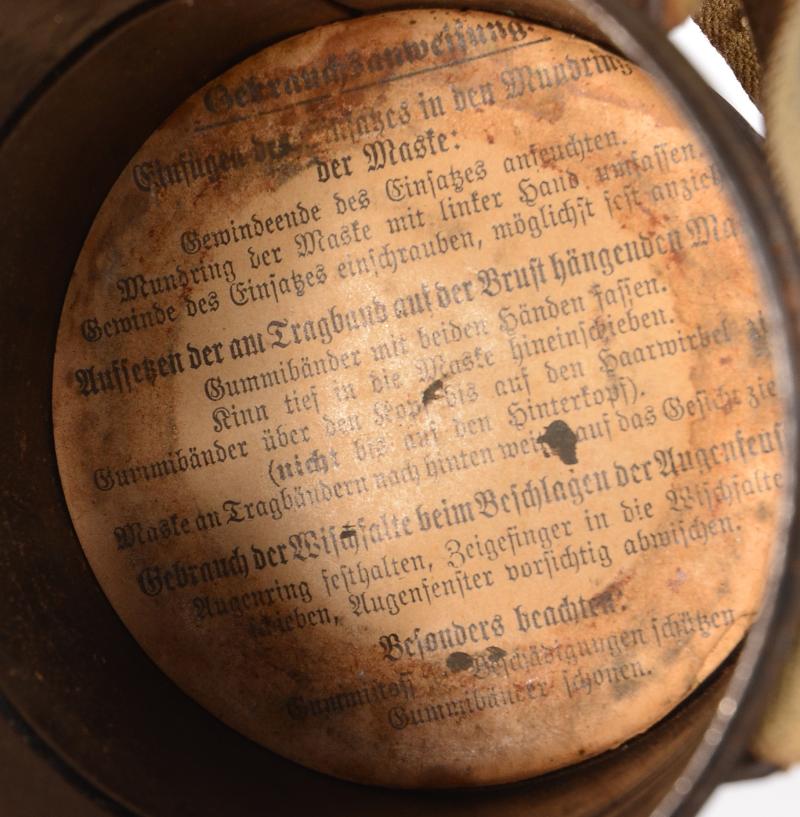 Gebrauchsanweisung.
Einfügen des Einsatzes in den Mundring
der Maske:
Gewindeende des Einsatzes anfeuchten.
Mundring der Maske mit linker Hand umfassen.
Gewinde des Einsatzes einschrauben, möglichst fest
Aufsetzen der am Tragband auf der Brust hängenden
Gummibänder mit beiden Händen fassen.
Kinn tief in die Maske hineinschieben.
Gummibänder über den Kopf bis auf den Haarwirbel
(nicht bis auf den Hinterkopf).
Maske an Tragbändern nach hinten auf das Gesicht
Gebrauch der Wischfalte beim Beschlagen der
Augenring festhalten, Zeigefinger in die Wischfalte
Augenfenster vorsichtig abwischen.
Besonders beachten:
Gummistoff Beschädigungen schützen
Gummibänder schonen.